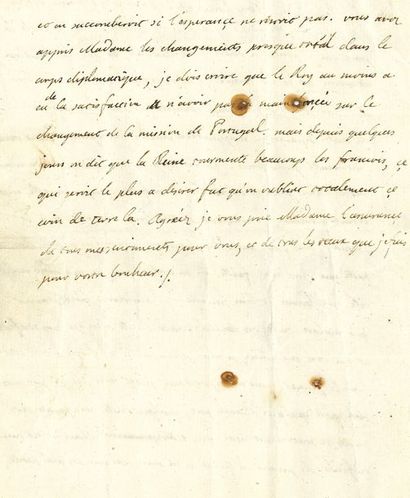 et on succomberoit si l'esperance ne venoit pas. vous avez
appris Madame les changements presque total dans le
corps diplomatique, je dois croire que le Roy au moins a
eu de la satisfaction n'avoir pas sur le
changement de la mission de Portugal, mais depuis quelques
jours on dit que la Reine tourmente beaucoups les francois, ce
qui seroit le plus a desirer fut qu'on oubliat totalement ce
coin de terre la. Agreez je vous prie Madame l'assurance
de tous mes sentiments pour vous, et de tous les voeux que je fais
pour votre bonheur ./.